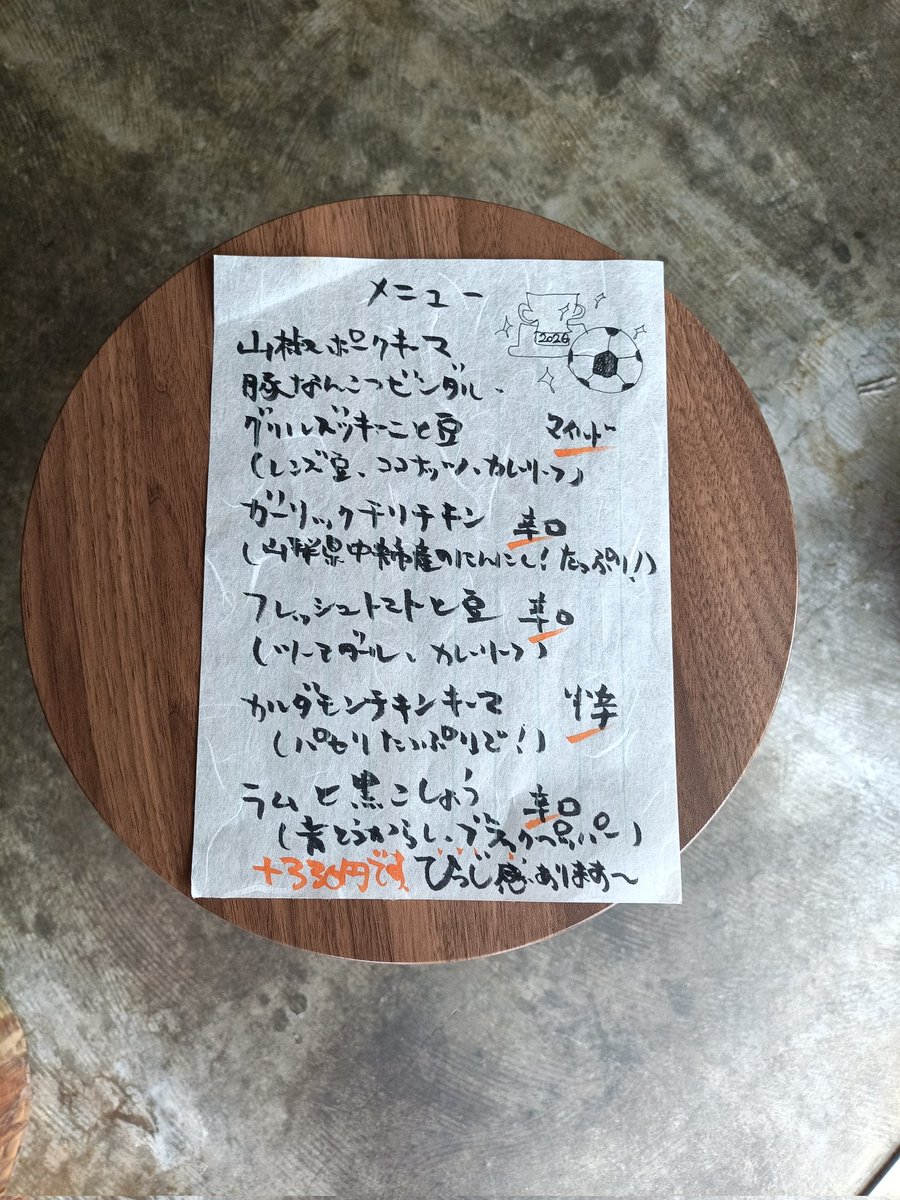 メニュー
2026
山椒ポークキーマ
豚なんこつビンダルー
グリルズッキーニと豆 マイルド
(レンズ豆、ココナッツ、カレーリーフ)
ガーリックチリチキン 辛口
(山梨県中央市産のにんにく!たっぷり!)
フレッシュトマトと豆 辛口
(ツールダール、カレーリーフ)
カルダモンチキンキーマ 小辛
(パセリたっぷりで!)
ラムと黒こしょう 辛口
(青とうがらし、ブラックペッパー)
+330円です ひつじ感、あります〜